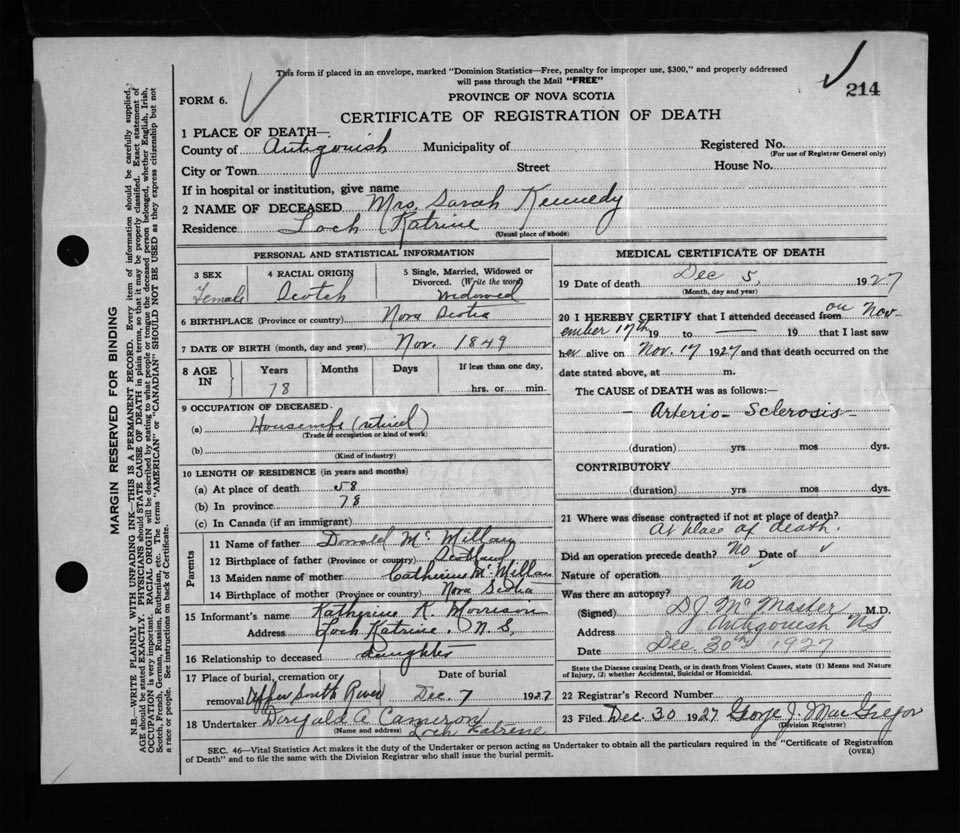 This form if placed in an envelope, marked "Dominion Statistics—Free, penalty for improper use, $300," and properly addressed
will pass through the Mail "FREE"
214
FORM 6.
PROVINCE OF NOVA SCOTIA
CERTIFICATE OF REGISTRATION OF DEATH
1 PLACE OF DEATH—
County of Antigonish Municipality of Registered No.
(For use of Registrar General only)
City or Town Street House No.
If in hospital or institution, give name
2 NAME OF DECEASED Mrs. Sarah Kennedy
Residence Loch Katrine
(Usual place of abode)
PERSONAL AND STATISTICAL INFORMATION
3 SEX 4 RACIAL ORIGIN 5 Single, Married, Widowed or
Divorced. (Write the word)
Female Scotch Widowed
6 BIRTHPLACE (Province or country) Nova Scotia
7 DATE OF BIRTH (month, day and year) Nov. 1849
8 AGE IN Years Months Days If less than one day,
78 hrs. or min.
9 OCCUPATION OF DECEASED
(a) Housewife (retired)
(Trade or occupation or kind of work)
(b)
(Kind of industry)
10 LENGTH OF RESIDENCE (in years and months)
(a) At place of death 58
(b) In province 78
(c) In Canada (if an immigrant)
Parents
11 Name of father Donald McMillan
12 Birthplace of father (Province or country) Scotland
13 Maiden name of mother Catherine McMillan
14 Birthplace of mother (Province or country) Nova Scotia
15 Informant's name Katherine K. Morrison
Address Loch Katrine. N.S.
16 Relationship to deceased daughter
17 Place of burial, cremation or Date of burial
removal Upper South River Dec. 7 1927
18 Undertaker Dougald A Cameron
(Name and address) Loch Katrine
MEDICAL CERTIFICATE OF DEATH
19 Date of death Dec 5, 1927
(Month, day and year)
20 I HEREBY CERTIFY that I attended deceased from on Nov-
ember 17th 19 to — 19 that I last saw
her alive on Nov. 17 1927 and that death occurred on the
date stated above, at m.
The CAUSE of DEATH was as follows:—
- Arterio-Sclerosis -
(duration) yrs mos dys.
CONTRIBUTORY
(duration) yrs mos dys.
21 Where was disease contracted if not at place of death?
At place of death.
Did an operation precede death? No Date of ✓
Nature of operation
Was there an autopsy? No
(Signed) D J McMaster M.D.
Address Antigonish NS
Date Dec. 30th 1927
State the Disease causing Death, or in death from Violent Causes, state (1) Means and Nature
of Injury, (2) whether Accidental, Suicidal or Homicidal.
22 Registrar's Record Number
23 Filed Dec 30 1927 George J. MacGregor
(Division Registrar)
SEC. 46—Vital Statistics Act makes it the duty of the Undertaker or person acting as Undertaker to obtain all the particulars required in the "Certificate of Registration
of Death" and to file the same with the Division Registrar who shall issue the burial permit. (OVER)
MARGIN RESERVED FOR BINDING
N.B.—WRITE PLAINLY WITH UNFADING INK—THIS IS A PERMANENT RECORD. Every item of information should be carefully supplied.
AGE should be stated EXACTLY. PHYSICIANS should STATE CAUSE OF DEATH in plain terms, so that it may be properly classified. Exact statement of
OCCUPATION is very important. RACIAL ORIGIN will be described by stating to what people or tongue the deceased person belonged, whether English, Irish,
Scotch, French, German, Russian, Ruthenian, etc. The terms "AMERICAN" or "CANADIAN" SHOULD NOT BE USED as they express citizenship but not
a race or people. See instructions on back of Certificate.